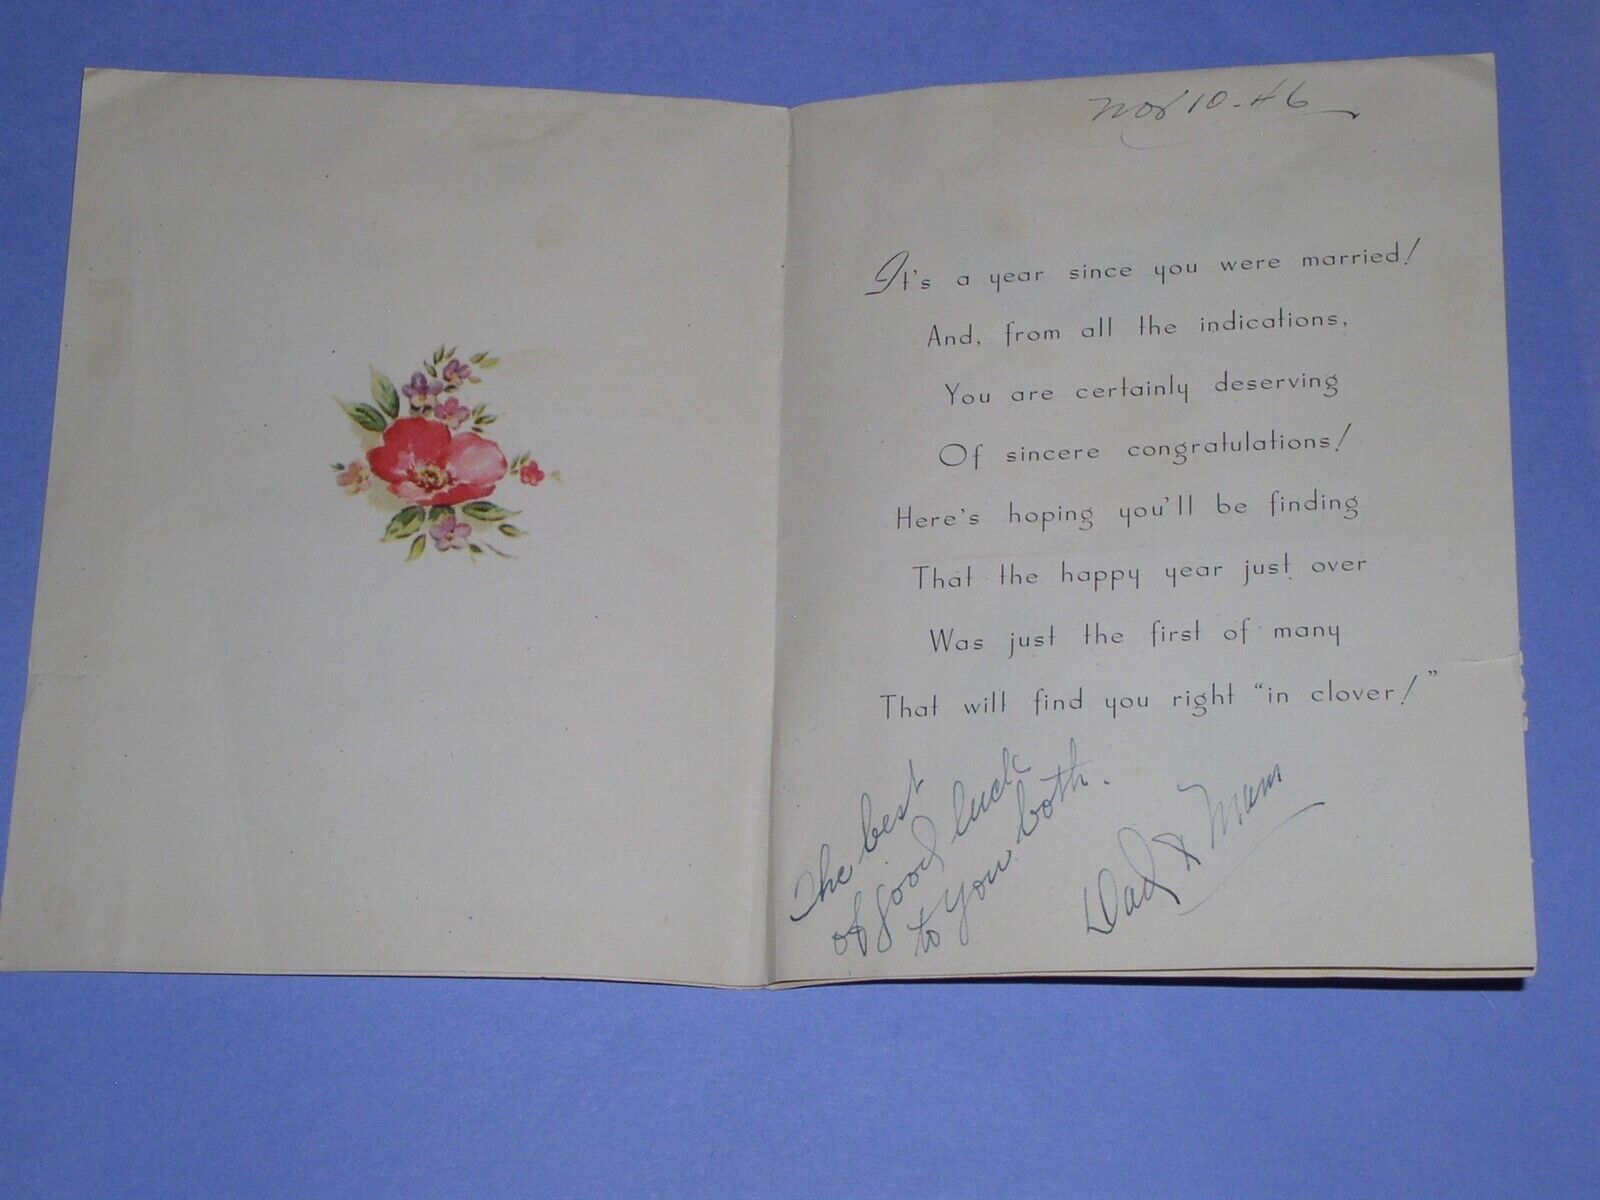 Nov 10-46
It's a year since you were married!
And, from all the indications,
You are certainly deserving
Of sincere congratulations!
Here's hoping you'll be finding
That the happy year just over
Was just the first of many
That will find you right "in clover!"
The best
of good luck
to you both.
Dad & Mam